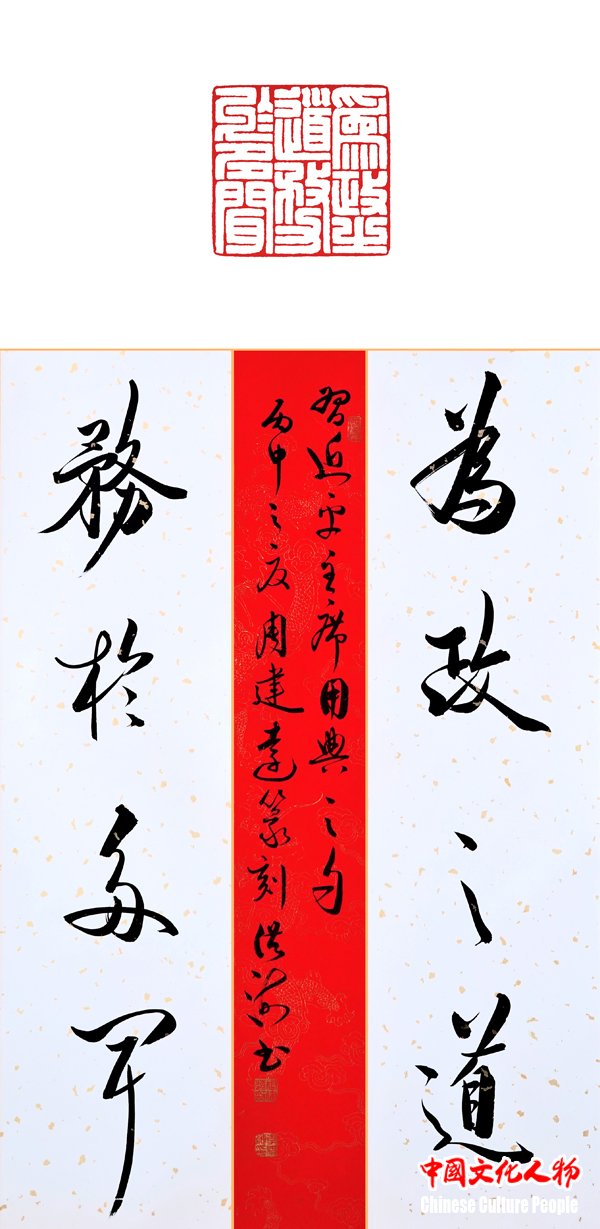 為政之
道務
於多聞
為政之道
務於多聞
習近平主席用典之句
丙申之夏周建遠篆刻洪書
中國文化人物
Chinese Culture People